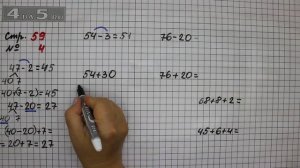 4 5
Стр. 59
№ 4
47-2=45
40 7
40+(7-2)=45
47-20=27
40 7
(40-20)+7=
=20+7=27
54-3=51
54+30
76-20
76+20=
68+8+2=
45+6+4=